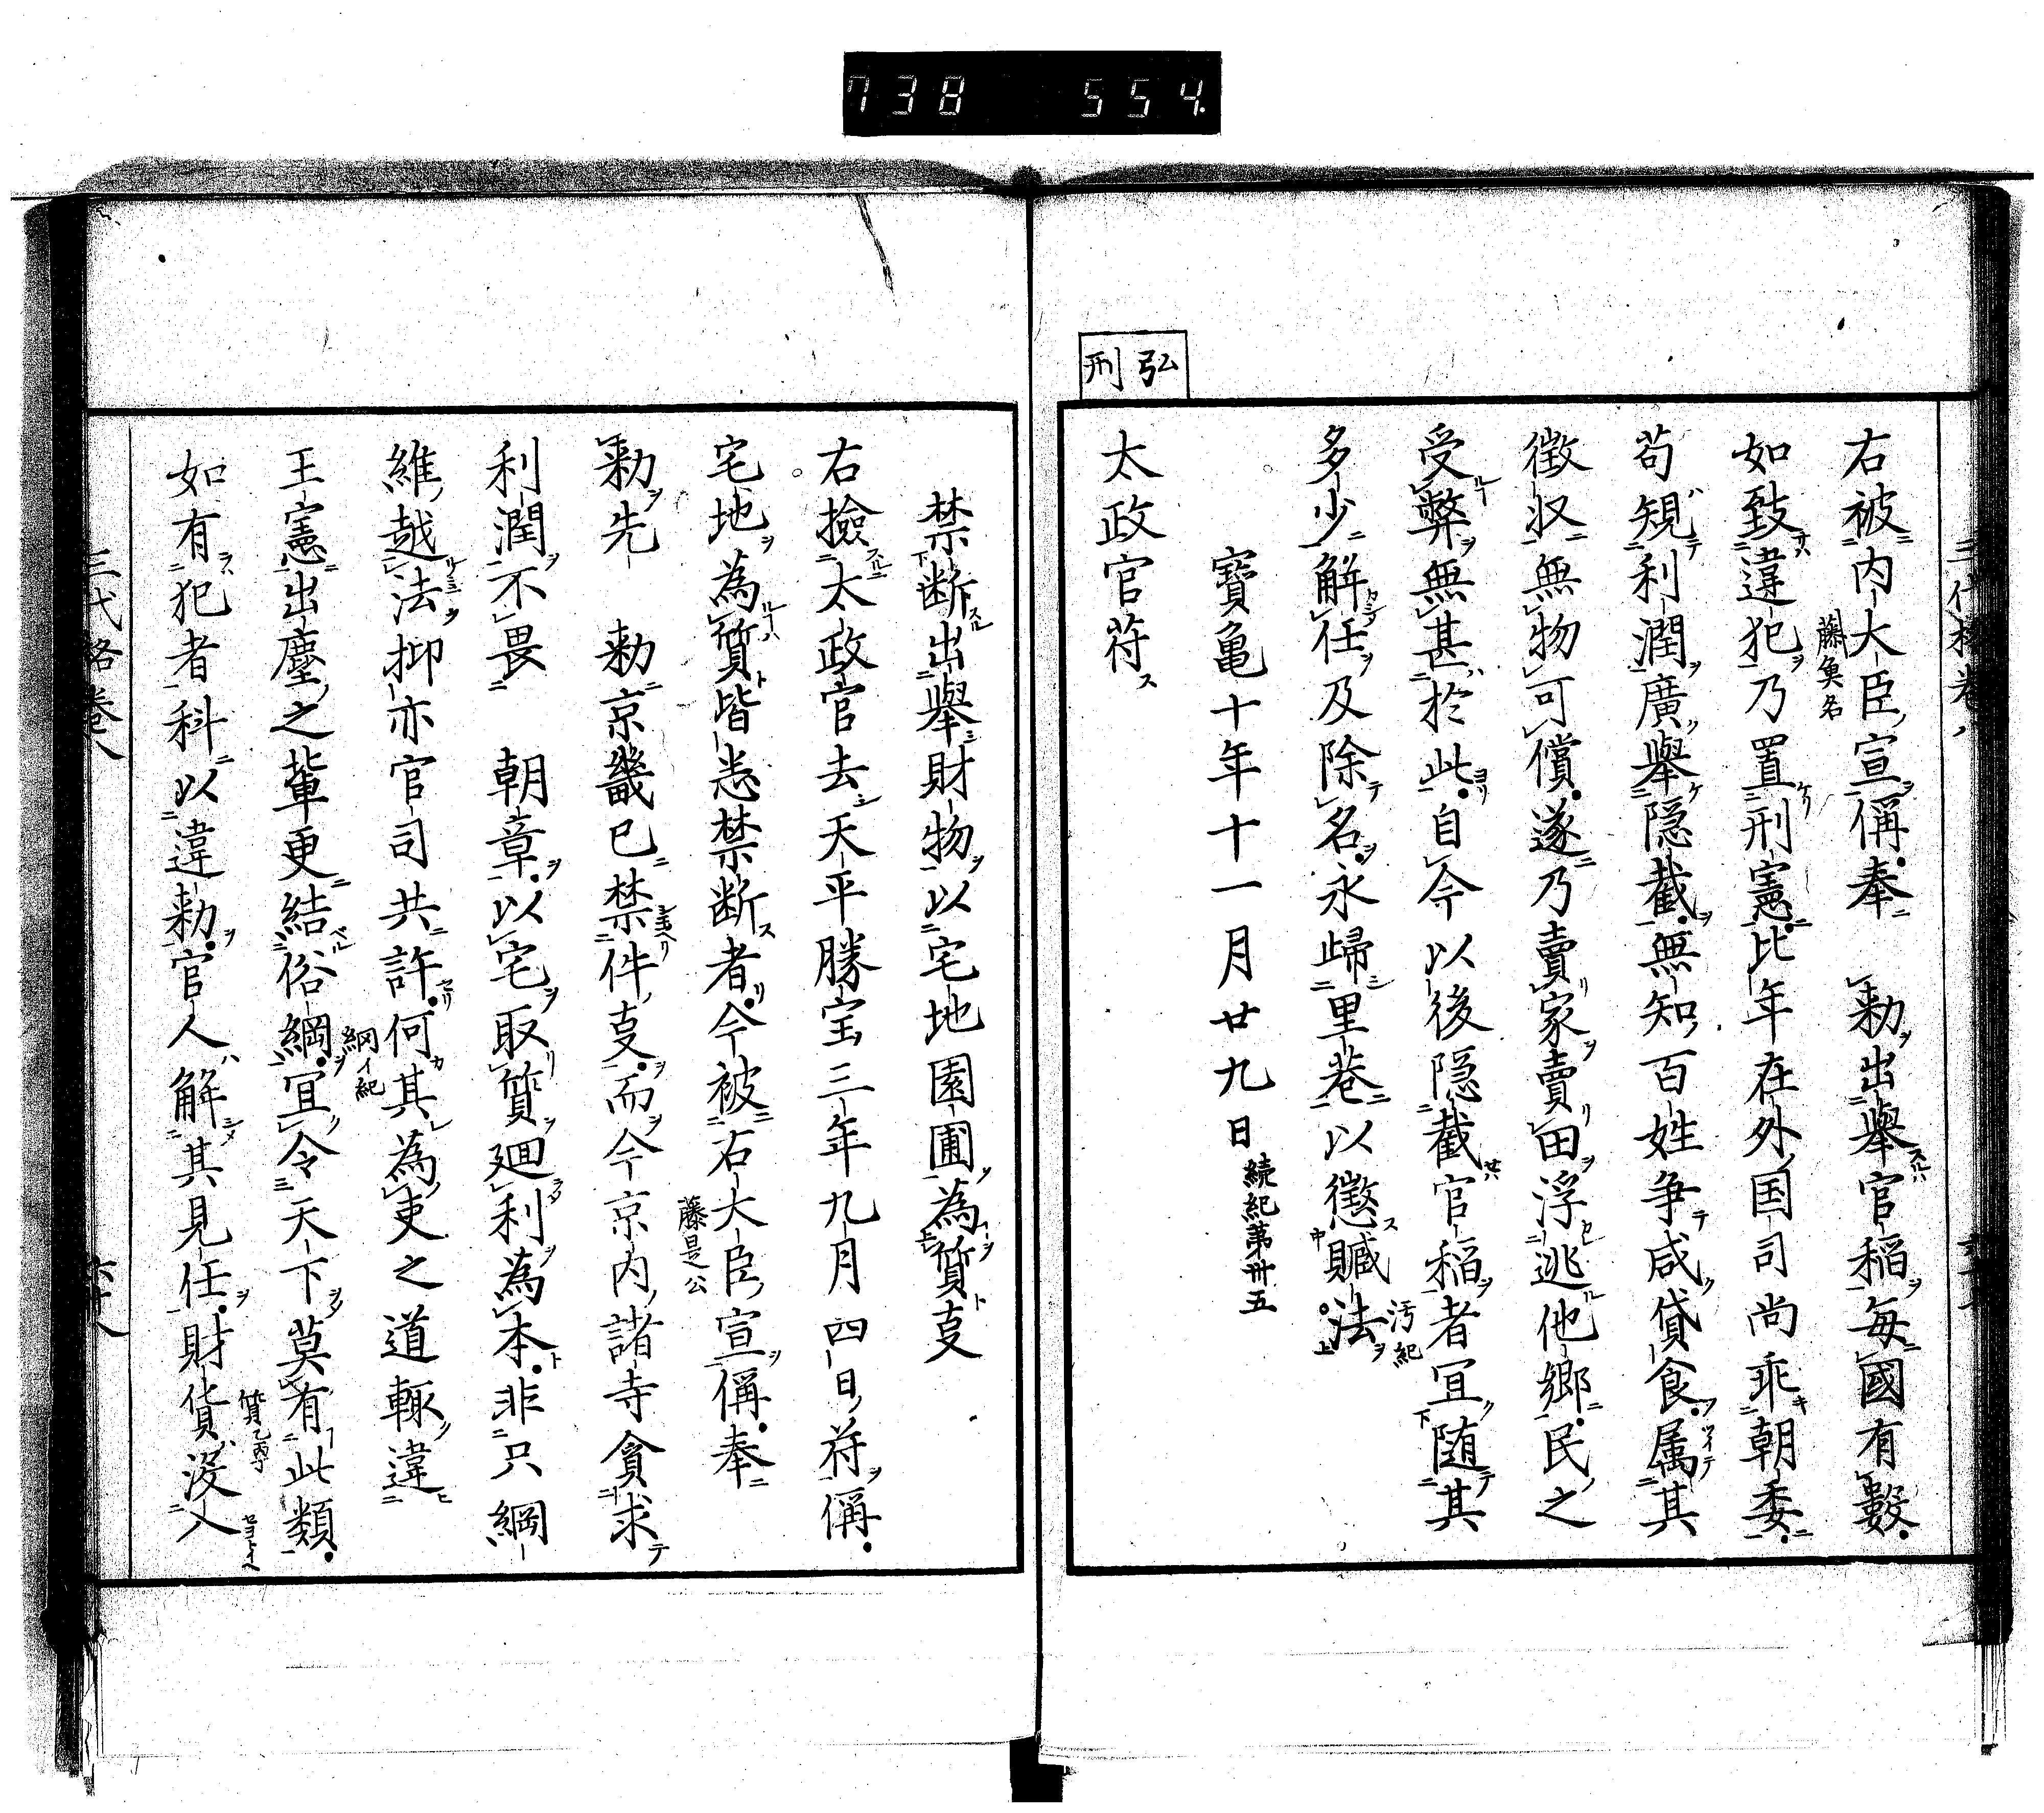 738 554
三代格巻八
右被内大臣宣偁奉　勅出擧官稲毎國有數
藤奠名
如致違犯乃置刑憲比年在外国司尚乖朝委
苟規利潤廣擧隠截無知百姓争咸貸食属其
徴収無物可償遂乃賣家賣田浮逃他郷民之
受弊無甚於此自今以後隠截官稲者宜随其
多少解任及除名永歸里巷以懲贓法
汚紀
寳亀十年十一月廿九日
続紀第卅五
弘刑
太政官苻
禁断出擧財物以宅地園圃為質叓
右撿太政官去天平勝宝三年九月四日苻偁
宅地為質皆悉禁断者今被右大臣宣偁奉
藤是公
勅先　勅京畿已禁件叓而今京内諸寺貪求
利潤不畏　朝章以宅取質廻利為本非只綱
維越法抑亦官司共許何其為吏之道輙違
王憲出塵之輩更結俗綱宜令天下莫有此類
網イ紀
如有犯者科以違勅官人解其見任財貨没入
質乙丙丁
三代格巻八